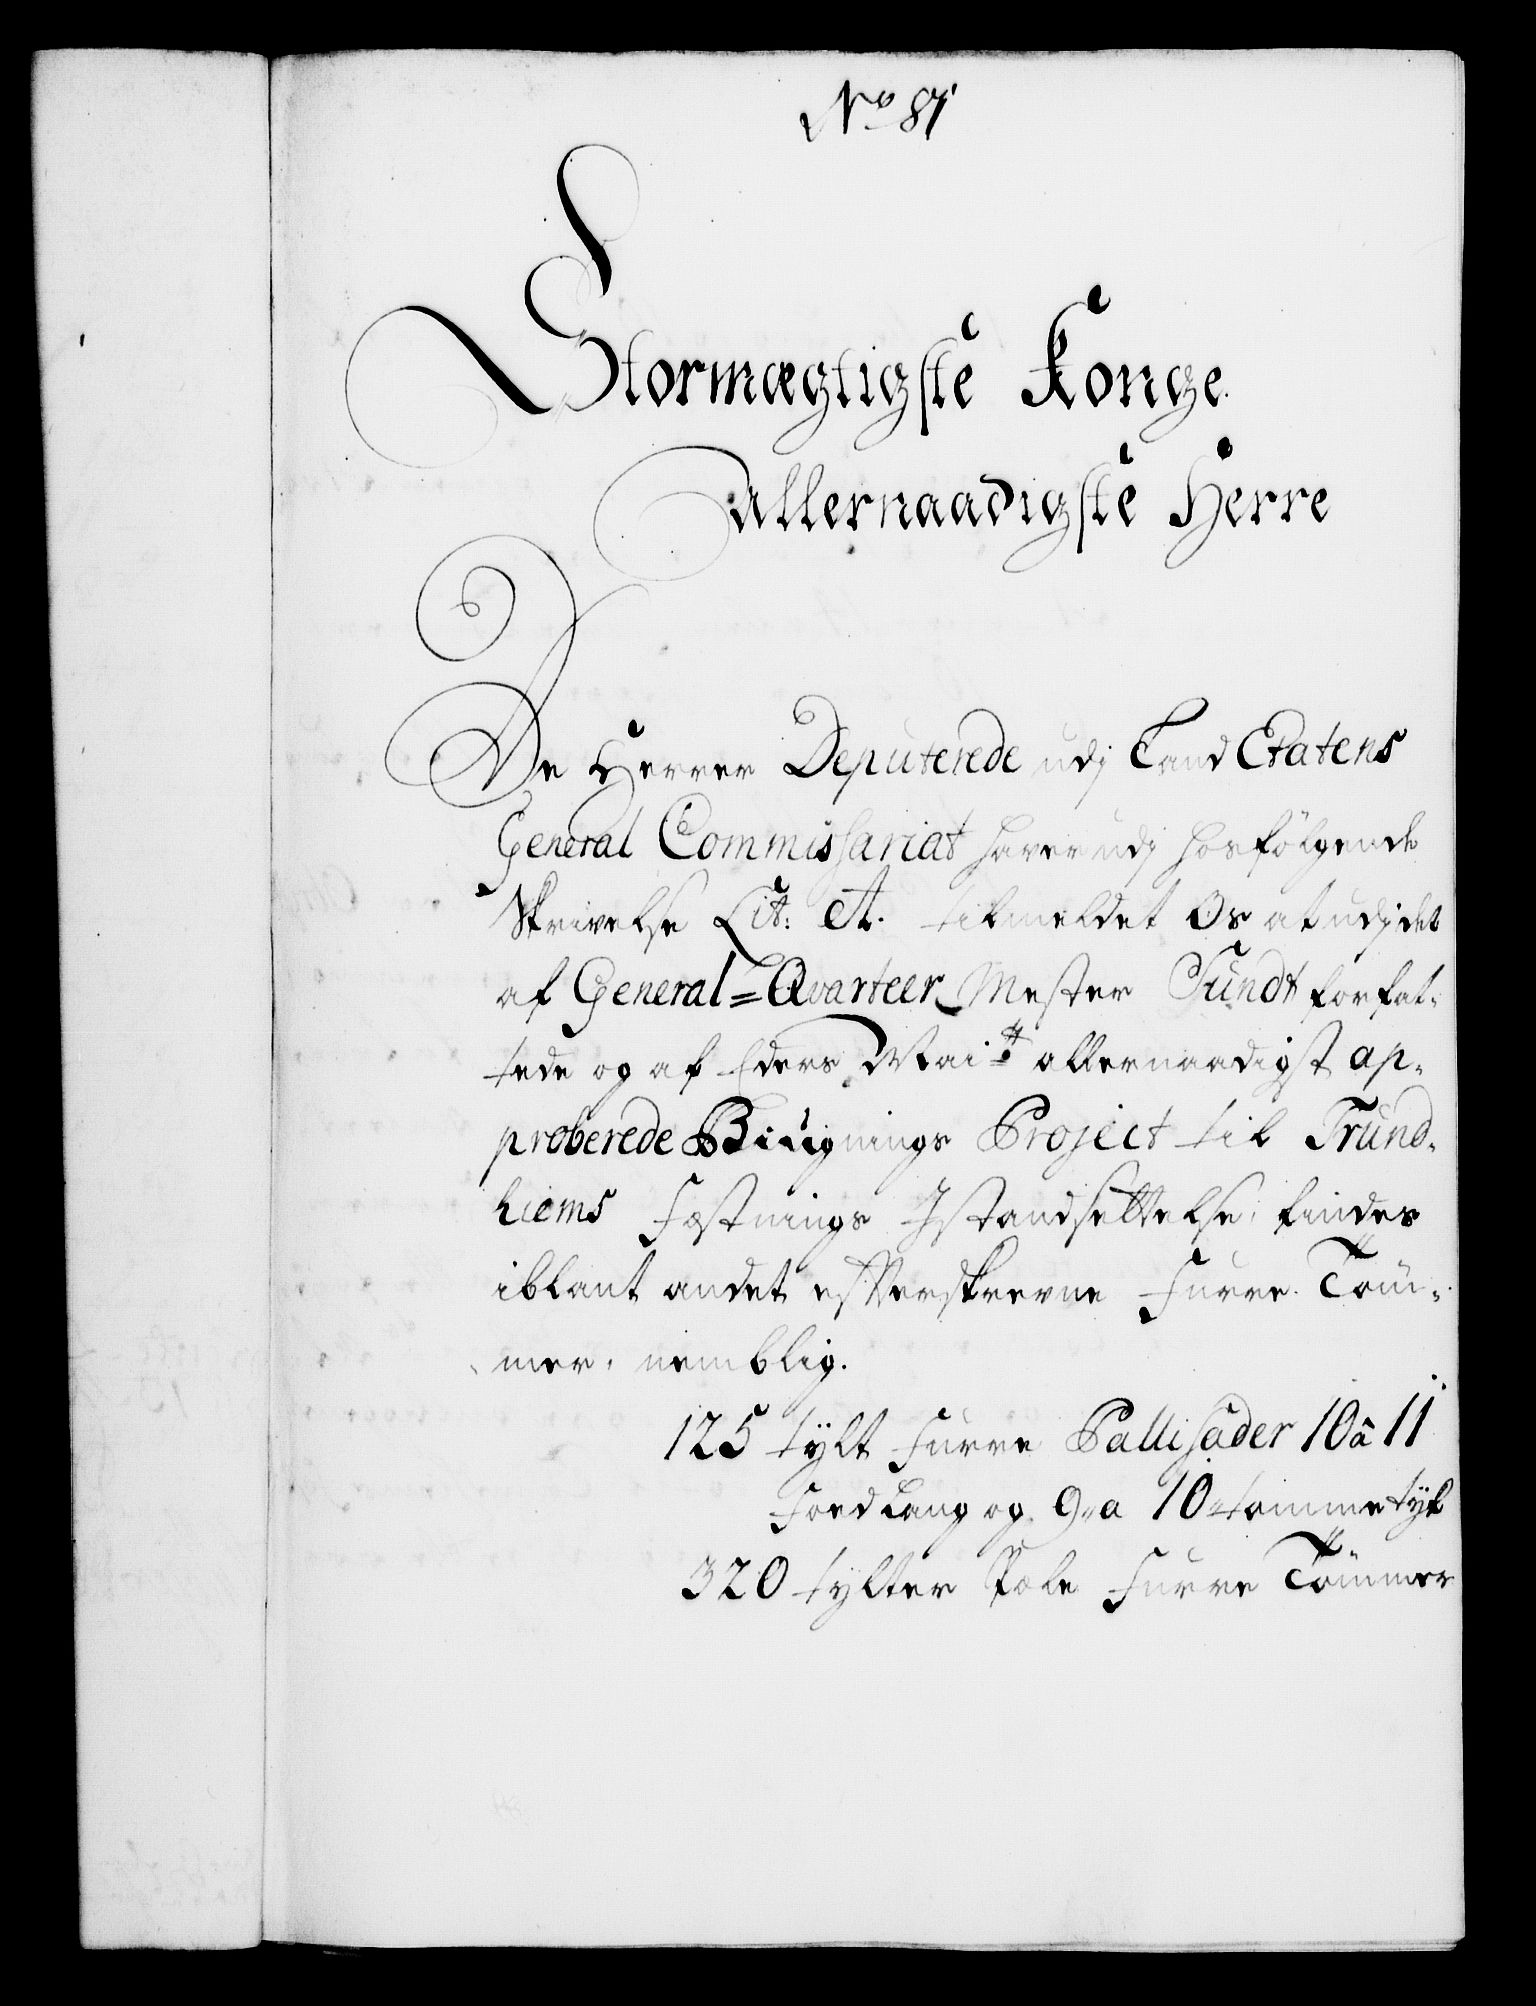 No 87
Stormægtigste Konge
Allernaadigste Herre
De Herrer Deputerede udj Land Etatens
General Commissariat haver udj hosfölgende
Skrivelse Lit: A. tilmeldet Os at udj det
af General=Qvarteer Mester Sundt forfat-
tede og af Eders Mait allernaadigst ap-
proberede Biugnings Project til Trund-
hiems Fæstnings Istandsettelse, findes
iblant andet efterskrevne Furre Töm-
mer, nemblig.
125 tylt Furre Pallisader 10 â 11
Foed Lang og 9 a 10 tomme tyk
320 tylter Pæle Furre Tömmer